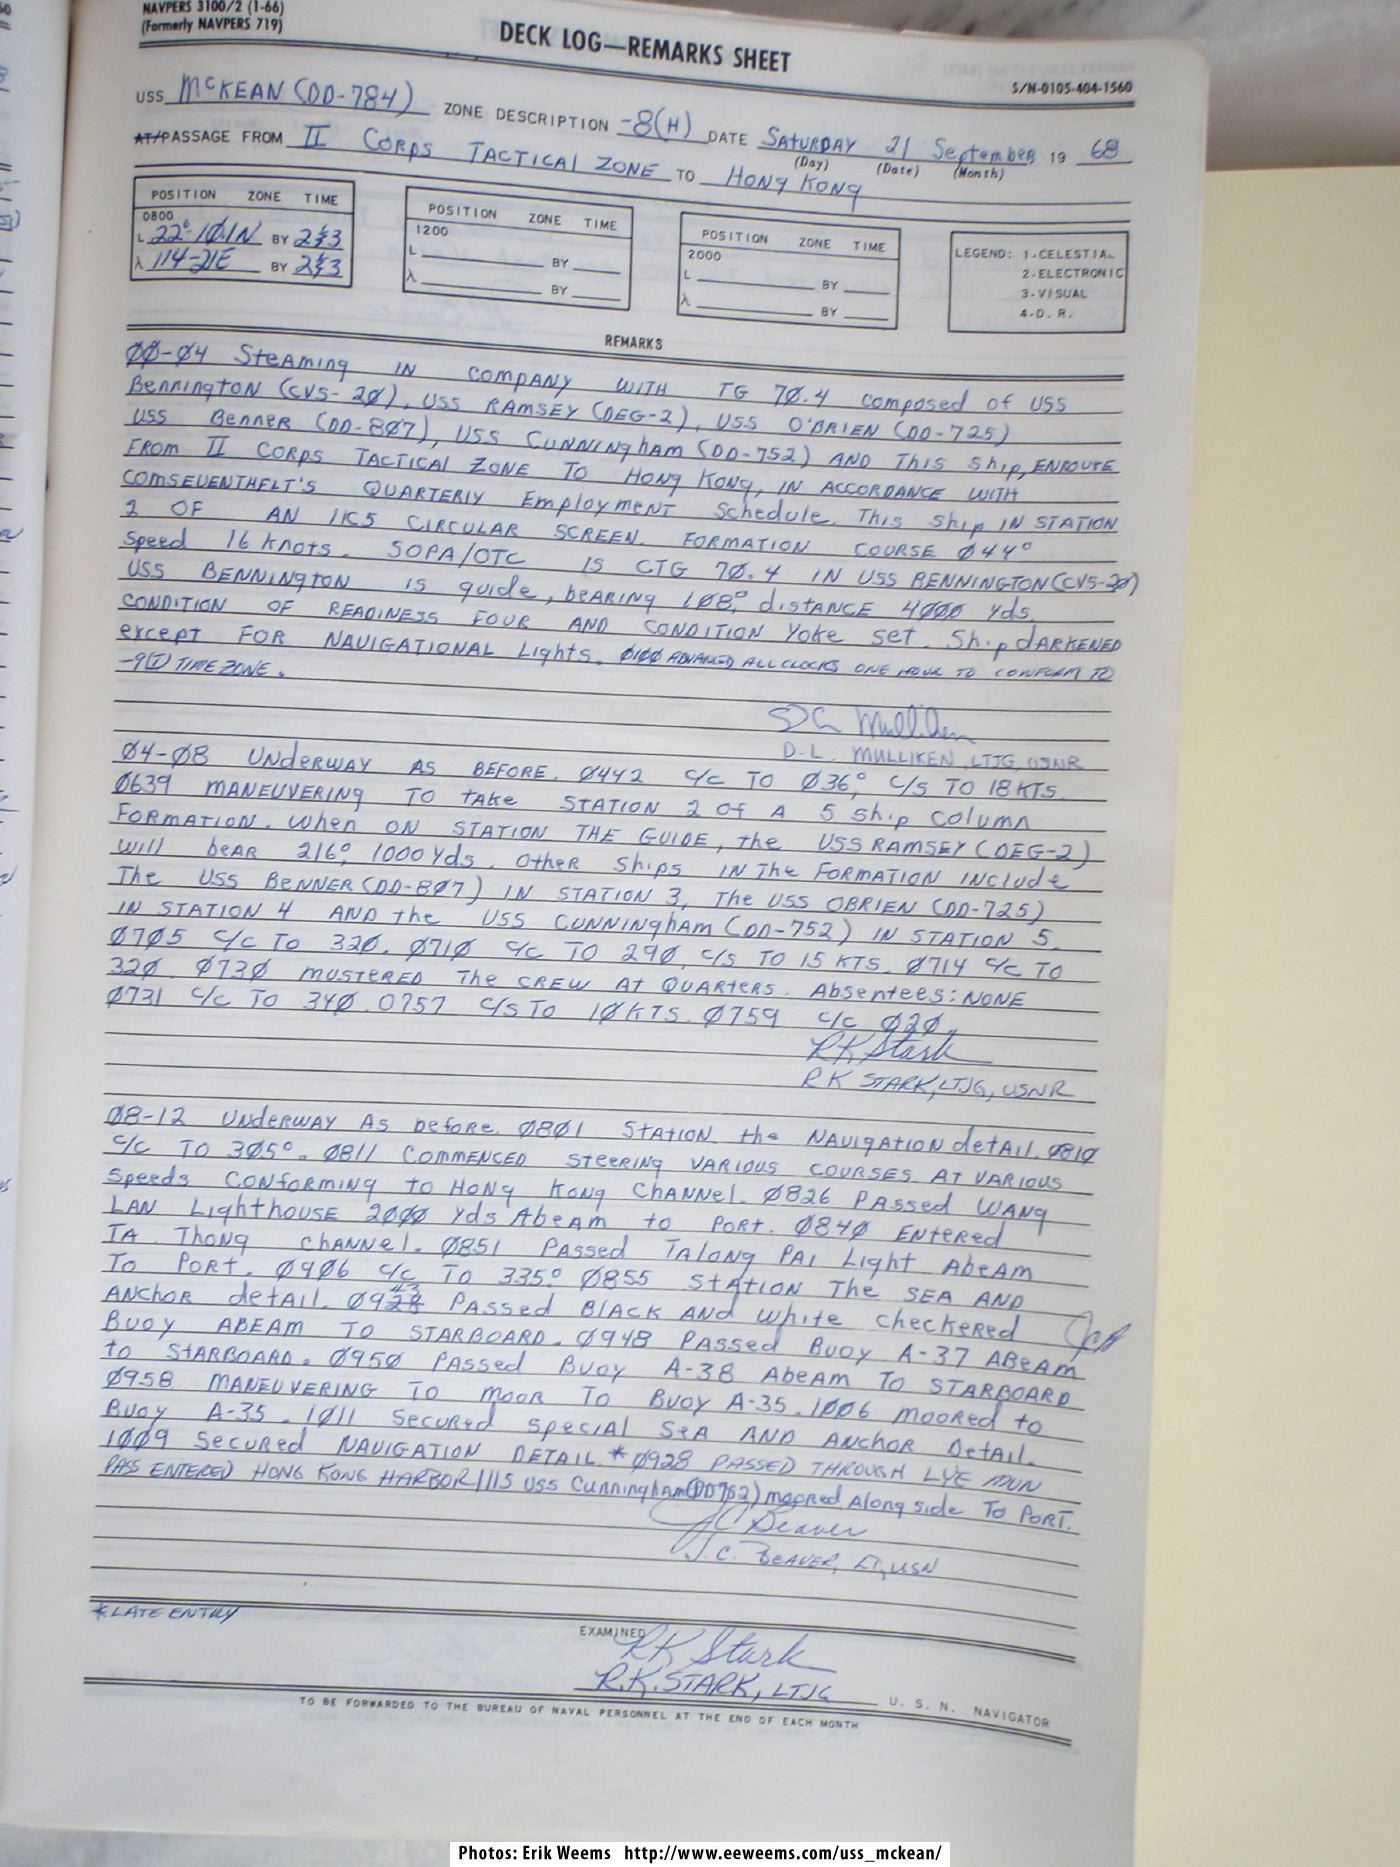 NAVPERS 3100/2 (1-66)
(Formerly NAVPERS 719)
DECK LOG—REMARKS SHEET
S/N-0105-404-1560
USS McKEAN (DD-784) ZONE DESCRIPTION -8(H) DATE SATURDAY 21 September 19 68
(Day) (Date) (Month)
AT/PASSAGE FROM II CORPS TACTICAL ZONE TO HONG KONG
POSITION ZONE TIME
0800
L 22°-10.1N BY 2&3
λ 114-21E BY 2&3
POSITION ZONE TIME
1200
L BY
λ BY
POSITION ZONE TIME
2000
L BY
λ BY
LEGEND: 1-CELESTIAL
2-ELECTRONIC
3-VISUAL
4-D. R.
REMARKS
00-04 Steaming IN COMPANY WITH TG 70.4 composed of USS
Bennington (CVS-20), USS RAMSEY (DEG-2), USS O'BRIEN (DD-725)
USS Benner (DD-807), USS Cunningham (DD-752) AND This Ship, ENROUTE
FROM II CORPS TACTICAL ZONE TO HONG KONG, IN ACCORDANCE WITH
COMSEVENTHFLT'S QUARTERLY Employment Schedule. This Ship IN STATION
2 OF AN 11C5 CIRCULAR SCREEN. FORMATION COURSE 044°
Speed 16 knots. SOPA/OTC IS CTG 70.4 IN USS BENNINGTON (CVS-20)
USS BENNINGTON is guide, bearing 108°, distance 4000 yds.
CONDITION OF READINESS FOUR AND CONDITION Yoke set. Ship DARKENED
except FOR NAVIGATIONAL Lights. 0100 ADVANCED ALL CLOCKS ONE HOUR TO CONFORM TO
-9(I) TIME ZONE.
D L Mulliken
D-L. MULLIKEN, LTJG, USNR
04-08 UNDERWAY AS BEFORE. 0442 C/C TO 036°, C/S TO 18 KTS.
0639 MANEUVERING TO take STATION 2 of A 5 ship column
FORMATION. When ON STATION THE GUIDE, the USS RAMSEY (DEG-2)
will bear 216°, 1000 yds. Other ships IN The FORMATION INClude
The USS BENNER (DD-807) IN STATION 3, The USS OBRIEN (DD-725)
IN STATION 4 AND the USS CUNNINGham (DD-752) IN STATION 5.
0705 C/C TO 320. 0710 C/C TO 290, C/S TO 15 KTS. 0714 C/C TO
320. 0730 MUSTERED The CREW At QUARTERS. Absentees: NONE
0731 C/C TO 340. 0757 C/S To 10 KTS. 0759 C/C 020.
RK Stark
R K STARK, LTJG, USNR
08-12 Underway As before. 0801 STATION the NAVIGATION detAIL. 0810
C/C TO 305°. 0811 COMMENCED STEERING VARIOUS COURSES AT VARIOUS
Speeds CONFORMING to HONG KONG CHANNEL. 0826 PASSED WANG
LAN Lighthouse 2000 yds AbEAM to PORT. 0840 ENtered
TA Thong channel. 0851 PASSED TALONG PAI Light AbeAM
To PORT. 0906 C/C TO 335° 0855 STATION The SEA AND
ANCHOR detAIL. 0928 43 PASSED BLACK AND white checkered
Buoy ABEAM TO STARBOARD. 0948 PASSED Buoy A-37 ABeAM
to STARBOARD. 0950 PASSED BuOY A-38 AbeAM TO STARBOARD
0958 MANEUVERING TO MOOR TO BuOY A-35. 1006 MOORED to
Buoy A-35. 1011 Secured special SeA AND ANCHOR DetAIL.
1009 Secured NAVIGATION DETAIL. * 0928 PASSED THROUGH LYE MUN
PASS ENTERED HONG KONG HARBOR 1115 USS Cunningham (DD752) moored Along side TO PORT.
JC Beaver
J. C. BEAVER, LT, USN
*LATE ENTRY
EXAMINED
RK Stark
R.K. STARK, LTJG U. S. N. NAVIGATOR
TO BE FORWARDED TO THE BUREAU OF NAVAL PERSONNEL AT THE END OF EACH MONTH
Photos: Erik Weems http://www.eeweems.com/uss_mckean/